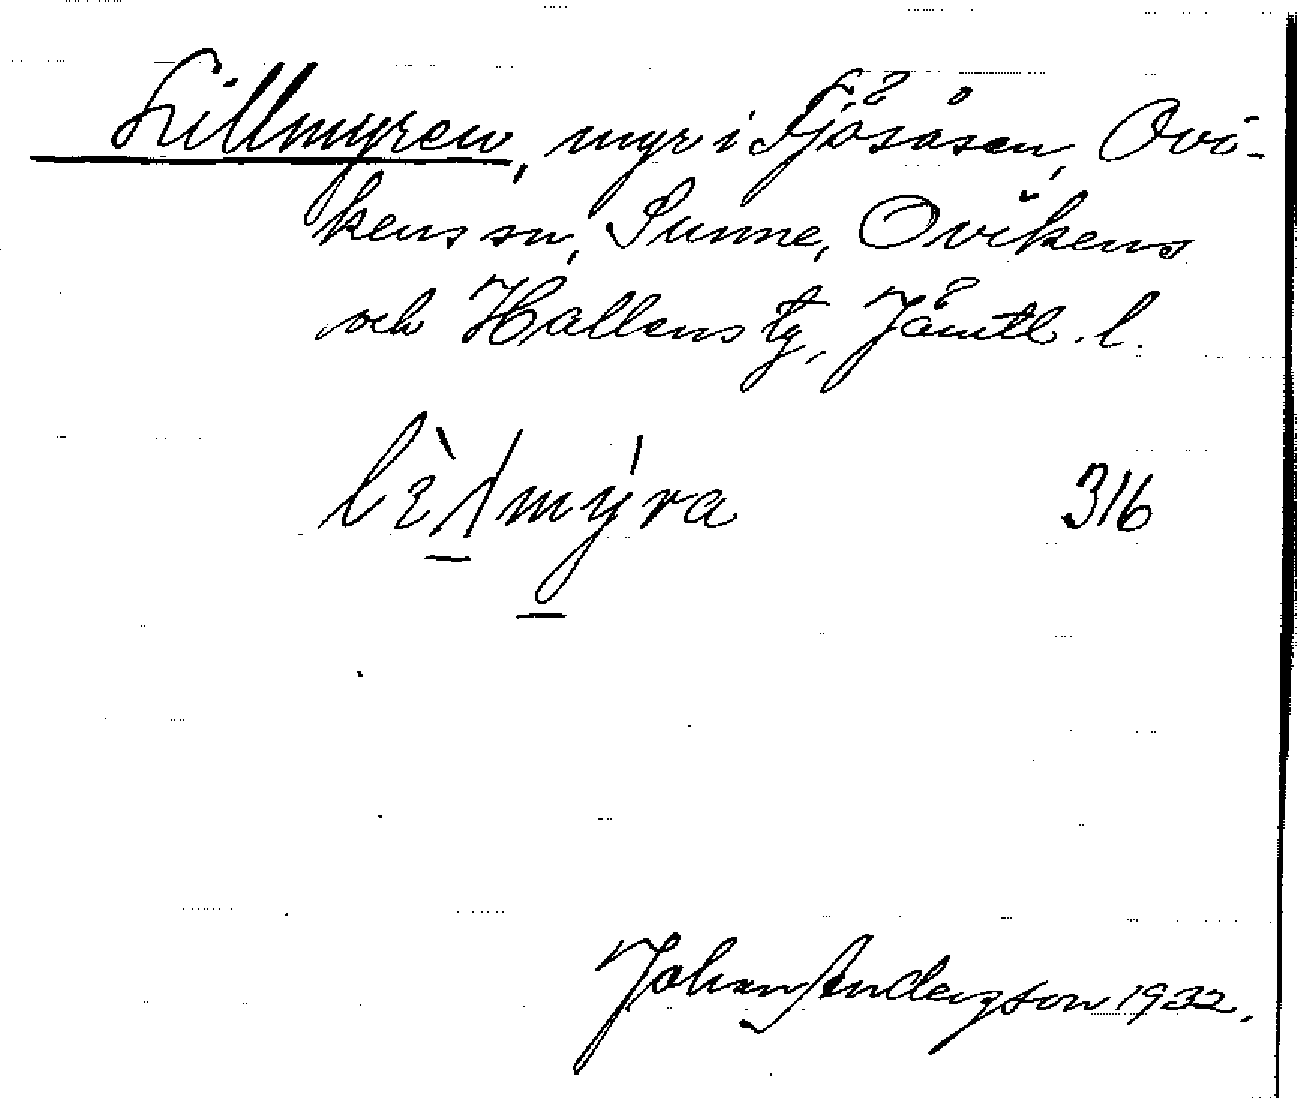 Lillmyren, myr i Fjösåsen, Ovi-
kens sn, Sunne, Ovikens
och Hallens tg, Jämtl. l.
316
Johan Anderzson 1932.